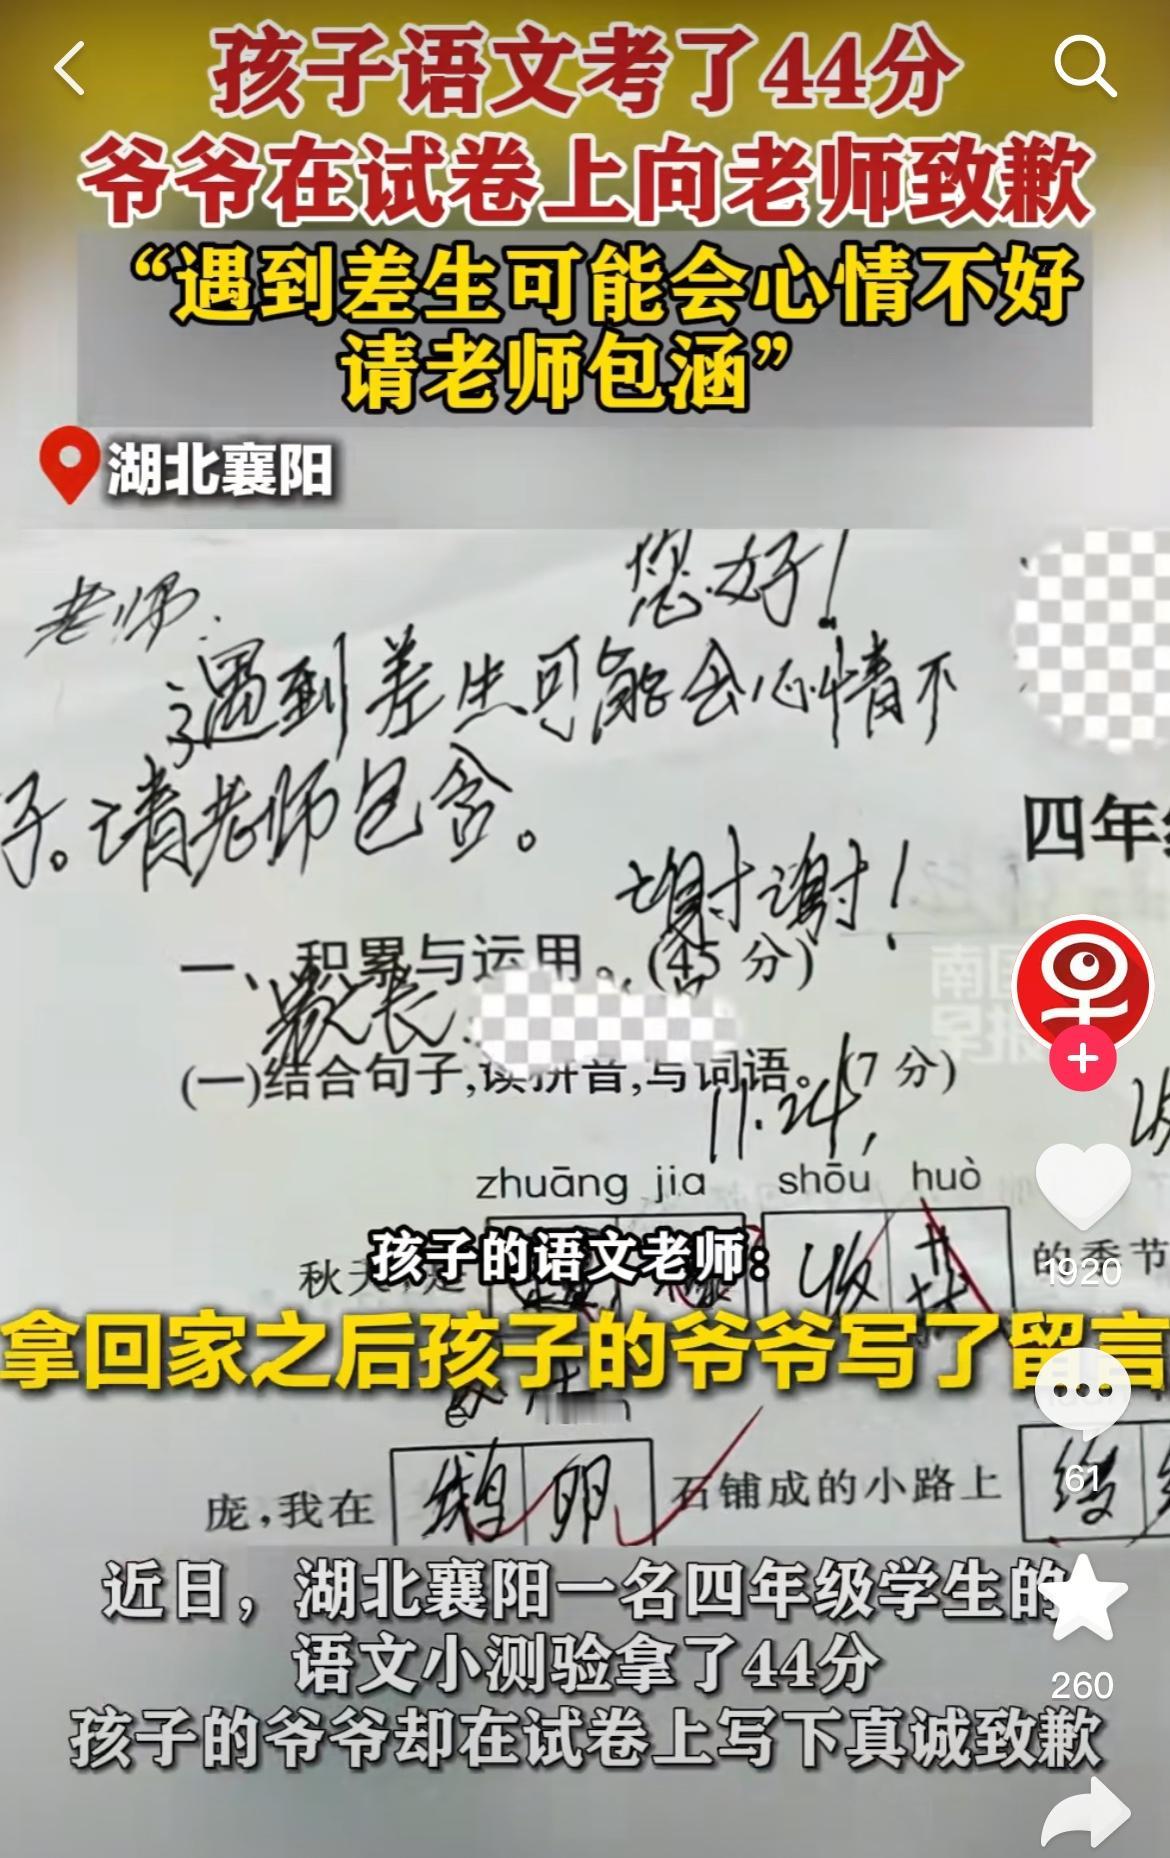 孩子语文考了44分
爷爷在试卷上向老师致歉
“遇到差生可能会心情不好
请老师包涵”
湖北襄阳
您好！
老师：
遇到差生可能会心情不
子。请老师包含。
四年级
谢谢！
一、积累与运用。(45分)
南国
早报
家长
(一)结合句子,读拼音,写词语。(7分)
11.24
zhuāng jia shōu huò
孩子的语文老师：
秋天 是 收获 的季节
1920
拿回家之后孩子的爷爷写了留言
é luǎn
61
庞,我在 鹅卵 石铺成的小路上
近日，湖北襄阳一名四年级学生的
语文小测验拿了44分
260
孩子的爷爷却在试卷上写下真诚致歉